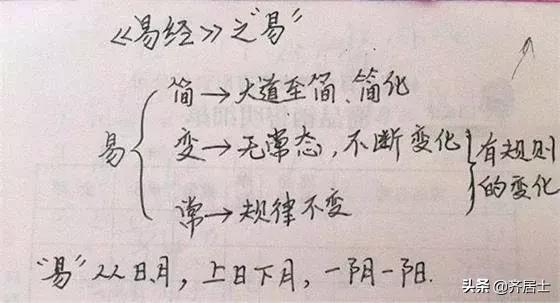 《易经》之"易"
简→大道至简、简化
易 变→无常态,不断变化 有规则的变化
常→规律不变
"易"从日、月,上日下月,一阴一阳.
头条 @齐居士